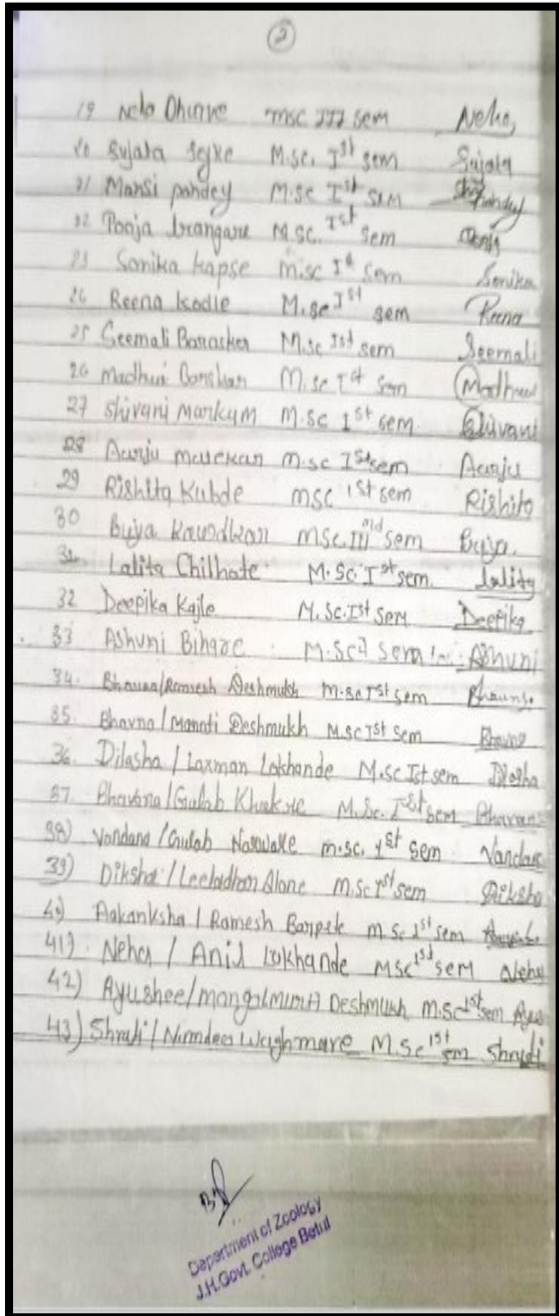 2
19 Neha Dhurve msc III sem Neha,
20 Sujata Sejke M.sc. Ist sem Sujata
21 Mansi pandey M.sc Ist sem Pandey
22 Pooja M.sc. Ist sem Pooja
23 Sonika kapse m.sc Ist sem Sonika
24 Reena kodle M.sc Ist sem Reena
25 Seemali Baraskar M.sc Ist sem Seemali
26 madhuri M.sc Ist sem Madhuri
27 Shivani markam M.sc Ist sem Shivani
28 Aanju m.sc Ist sem Aanju
29 Rishita Kubde msc 1st sem Rishita
30 msc. III rd sem
31 Lalita Chilhate M.Sc. Ist sem. Lalita
32 Deepika Kajle M.Sc. Ist sem Deepika
33 Ashuni Bihare M.sc I sem Ashuni
34. Ramesh Deshmukh m.sc Ist sem
35. Bhavna / Maroti Deshmukh M.sc Ist sem Bhavna
36. Dilasha / Laxman Lokhande M.sc Ist sem Dilasha
37. Bhavana / Gulab M.Sc. Ist sem Bhavana
38) Vandana / Gulab m.sc. 1st sem Vandana
39) Diksha / Leeladhar Alone m.sc 1st sem Diksha
40) Aakanksha / Ramesh m.sc 1st sem
41) Neha / Anil Lokhande Msc 1st sem Neha
42) Ayushee / Deshmukh m.sc 1st sem Ayu
43) Shruti / Waghmare M.Sc 1st sem Shruti
Department of Zoology
J.H.Govt. College Betul